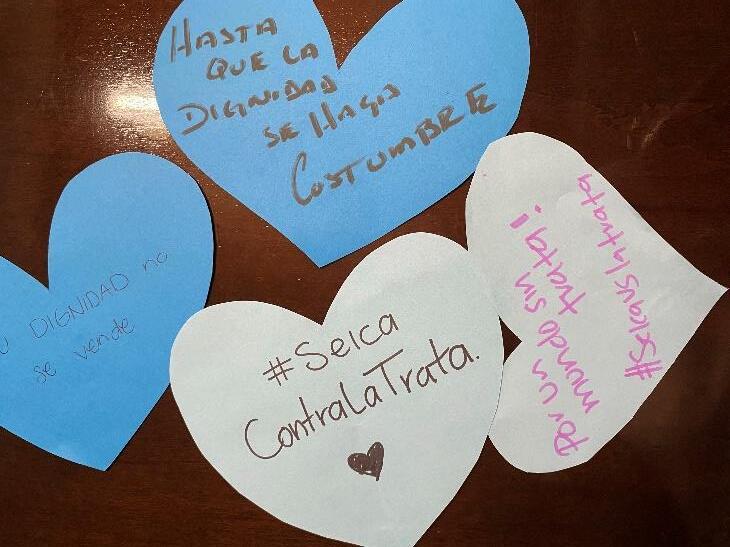 HASTA
QUE LA
DIGNIDAD
SE HAGA
COSTUMBRE
DIGNIDAD no
se vende
#Seica
ContraLaTrata.
Por un
mundo sin
trata!
#Seicavslatrata